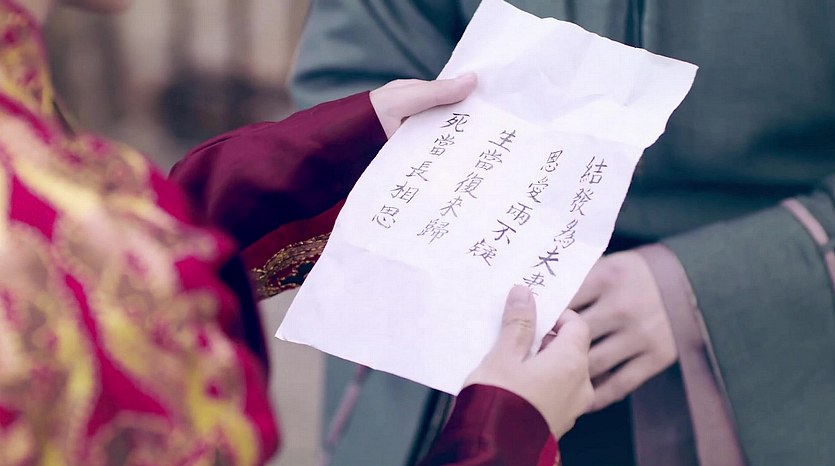 結發為夫妻
恩愛雨不疑
生當復來歸
死當長相思